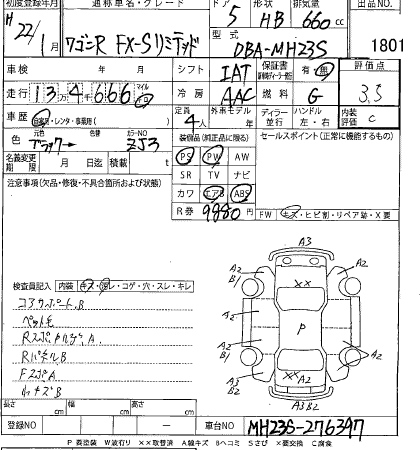 初度登録年月 通称車名・グレード ドア 形状 排気量 出品NO.
H 22/1月 ワゴンR FX-Sリミテッド 5 HB 660cc
型式 DBA-MH23S 1801
車検 シフト IAT 保証書 有・無 評価点
走行 134,666 マイル km 冷房 AAC 燃料 G 3.5
車歴 自家用・レンタ・事業用( ) 定員 4人 外車モデル ディーラー 並行 ハンドル 左・右 内装評価 C
色 元色 ブラック 色替 カラーNO ZJ3 装備品(純正品に限る) セールスポイント(正常に機能するもの)
名義変更期限 月 日迄 積載 t PS PW AW
注意事項(欠品・修復・不具合箇所および状態) SR TV ナビ
カワ エアB ABS
R券 9980円 FW キズ・ヒビ割・リペア跡・X要
検査員記入 内装 キズ・汚レ・コゲ・穴・スレ・キレ
コアサポート.B
RパネルB
A3
A2 B1 A2
A2 ×× A2
P
A2 B1 A2
××A2
A3 B2
長さ cm 幅 cm 高さ cm
登録NO － 車台NO MH23S-276397
P 要塗装 W波有り ××取替済 A線キズ Bヘコミ Sさび ×要交換 C腐食